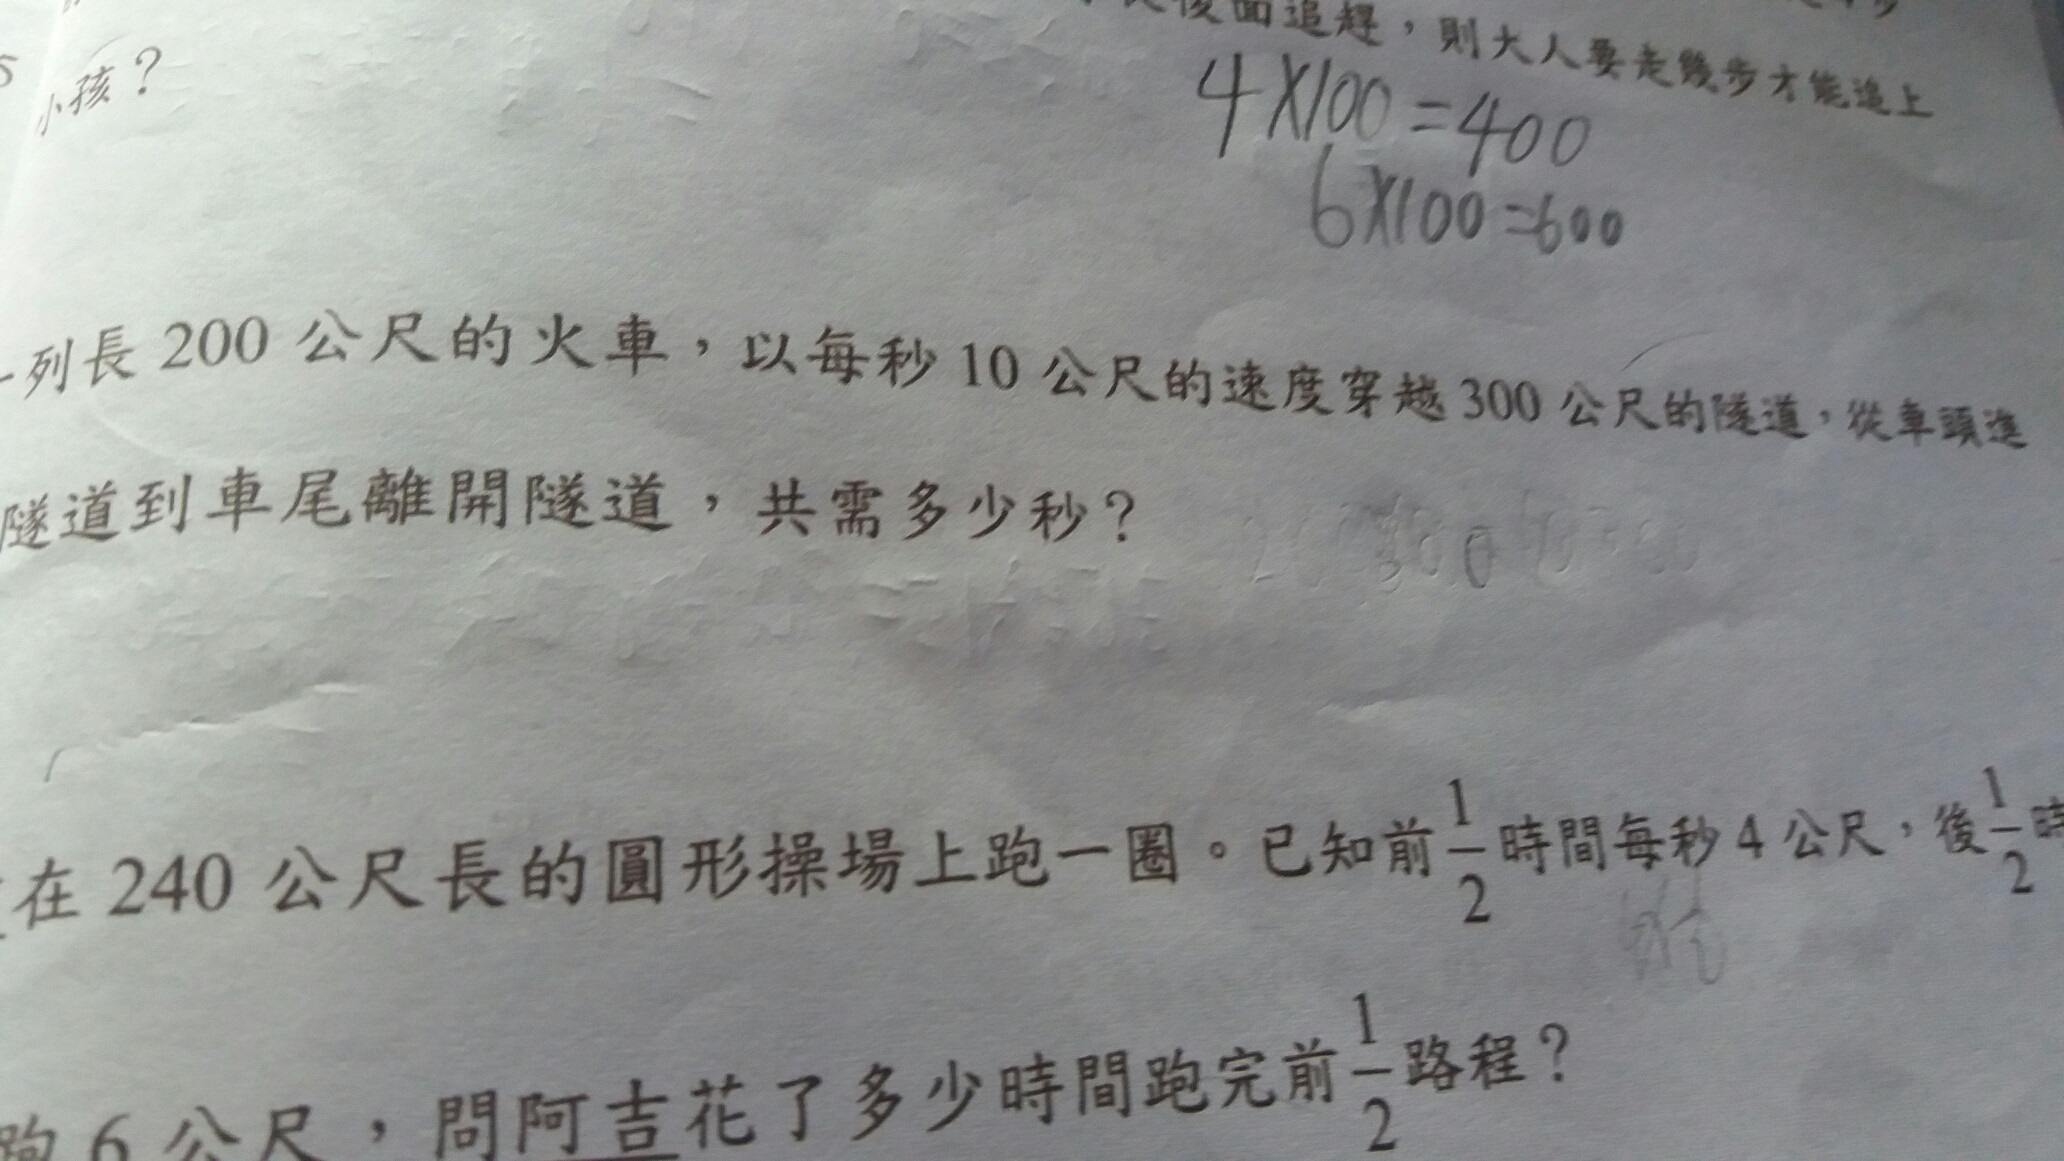 後面追趕，則大人要走幾步才能追上
小孩？
4×100=400
6×100=600
一列長 200 公尺的火車，以每秒 10 公尺的速度穿越 300 公尺的隧道，從車頭進
隧道到車尾離開隧道，共需多少秒？
在 240 公尺長的圓形操場上跑一圈。已知前 1/2 時間每秒 4 公尺，後 1/2 時
跑 6 公尺，問阿吉花了多少時間跑完前 1/2 路程？